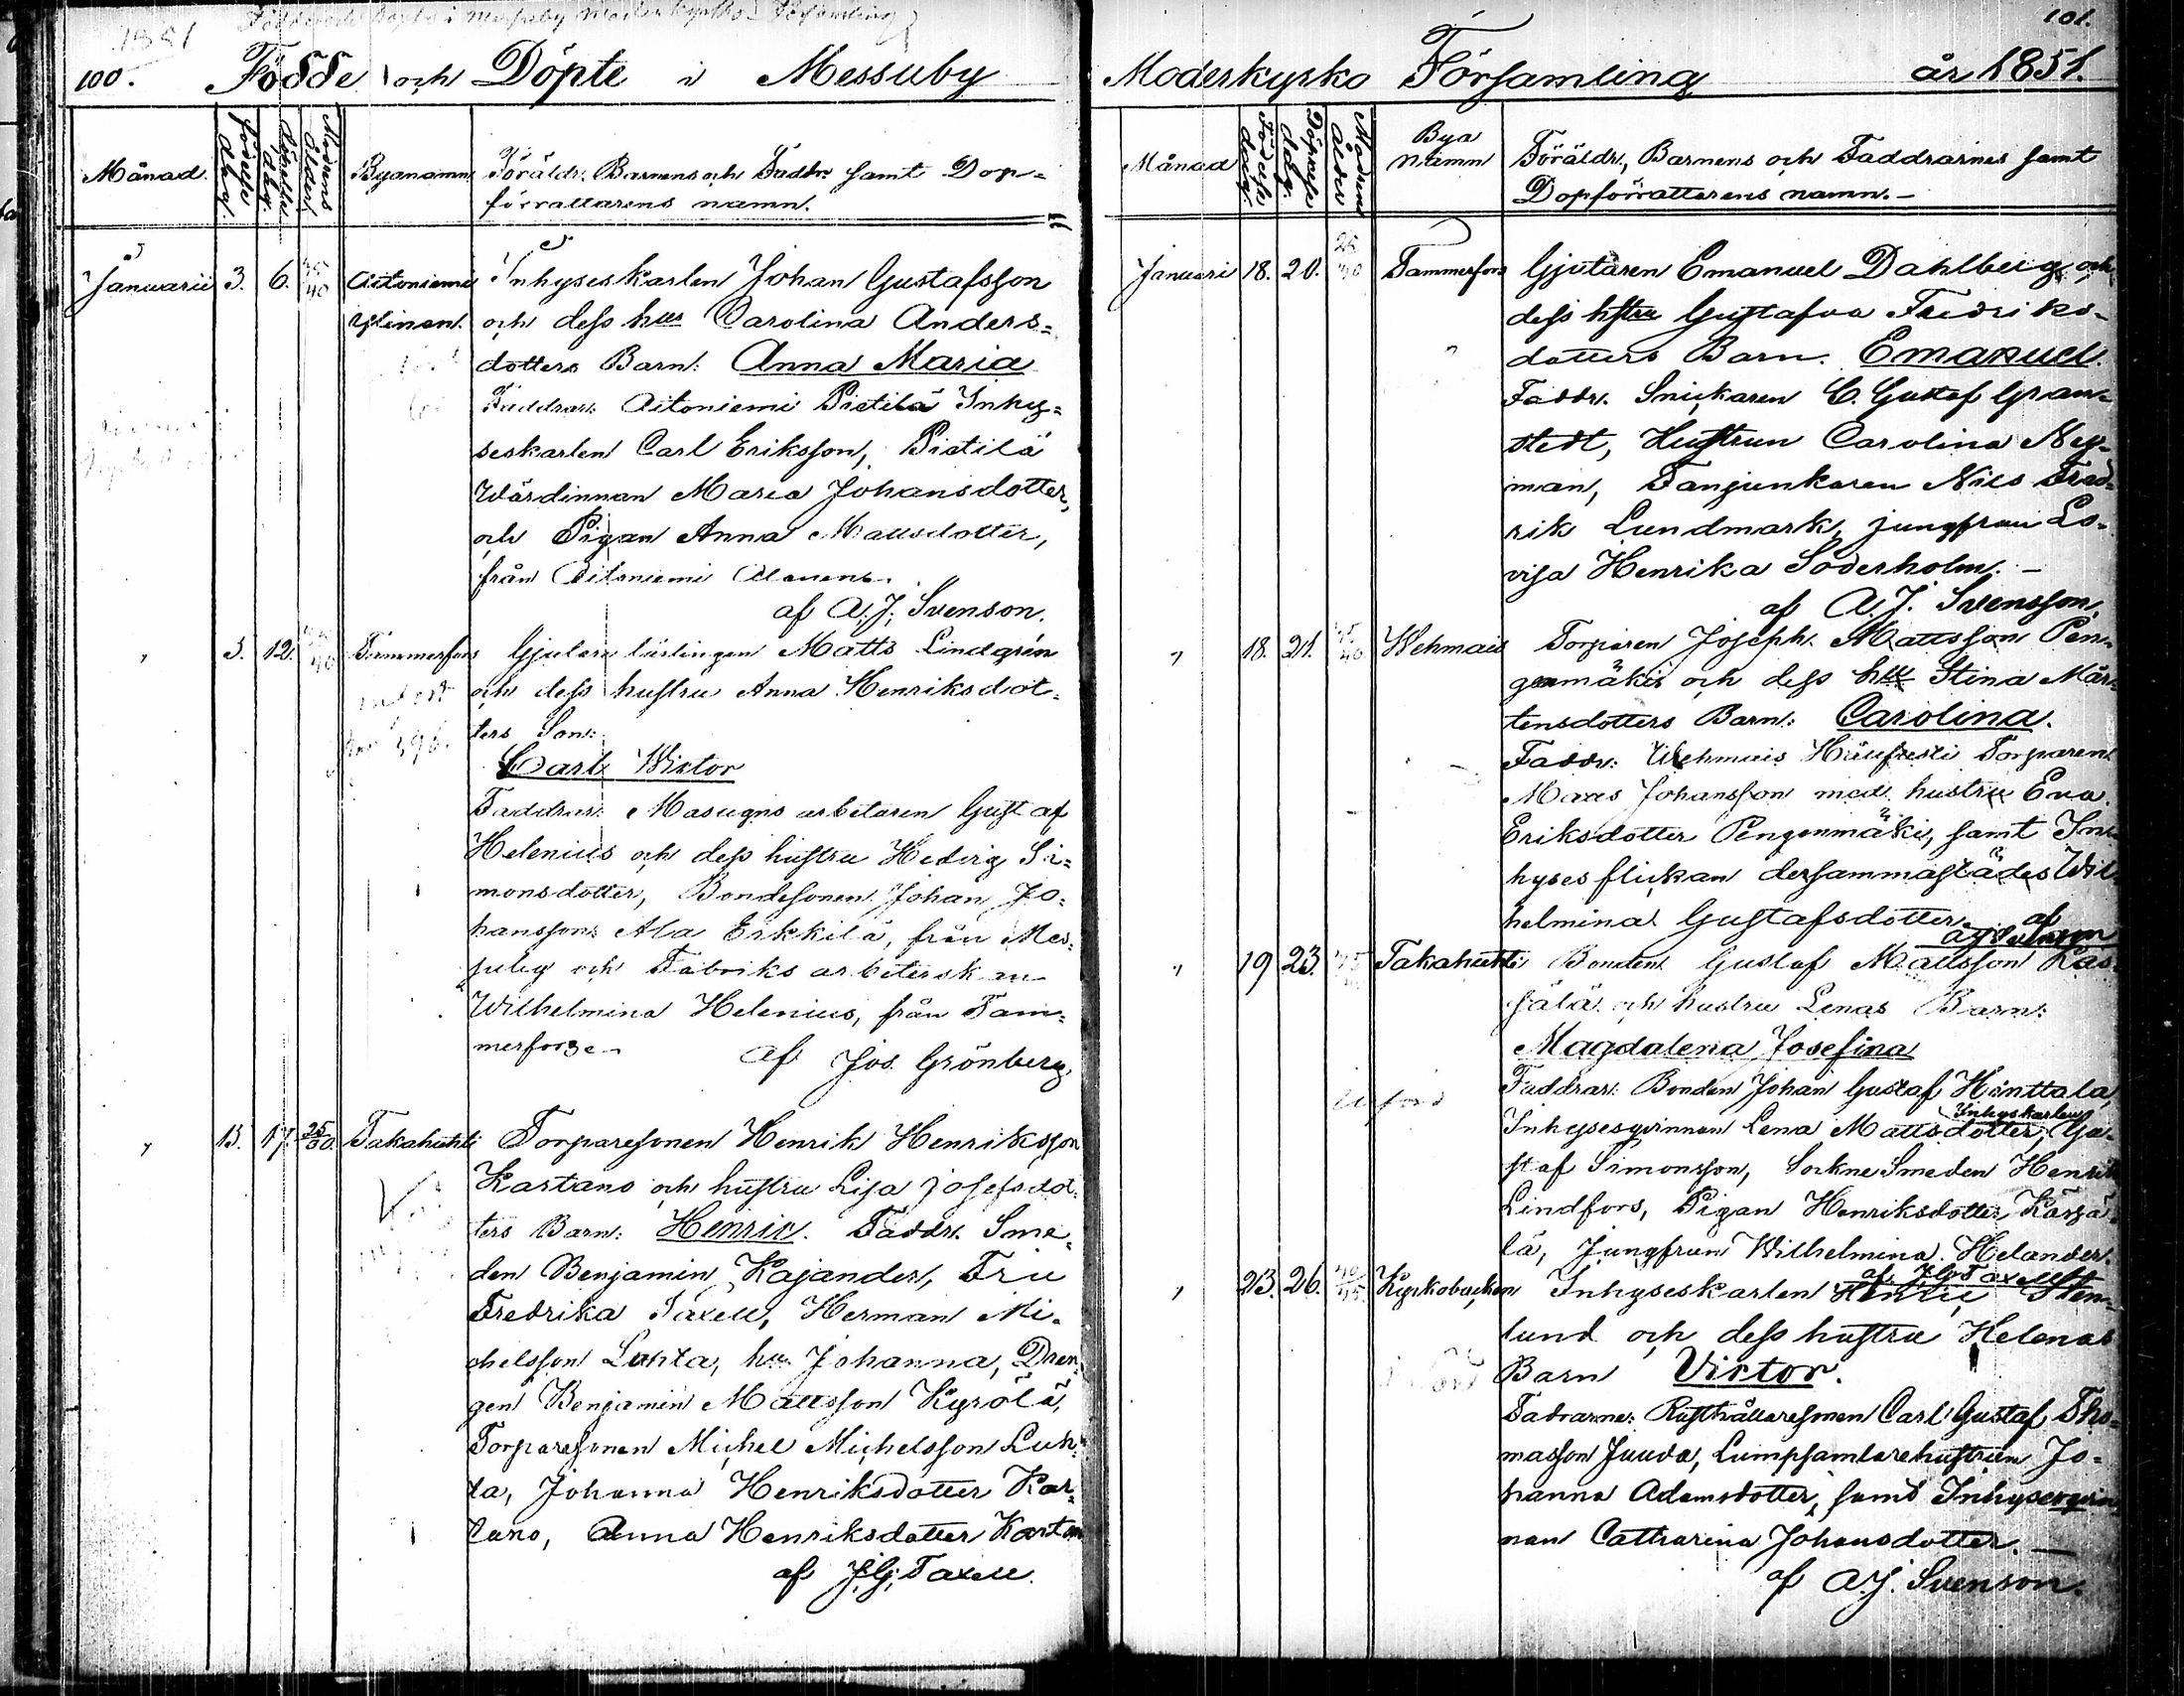 1851
100.
Födde och Döpte i Messuby
Månad.
födelse dag.
Döpelse dag.
Modrens Ålder.
Byanamn
Föräldr. Barnens och Faddr. samt Dop-
förrattarens namn.
Januarii 3. 6. 35/40 Aitoniemi Inhyseskarlen Johan Gustafsson
Ylinen. och dess hus Carolina Anders-
dotters Barn: Anna Maria
Faddrar: Aitoniemi Pietilä Inhy-
seskarlen Carl Eriksson, Pietilä
Wärdinnan Maria Johansdotter,
och Pigan Anna Mattsdotter,
från Aitoniemi Alanens.
af A. J. Svenson.
" 5. 12. 40 Tammerfors Gjutere lärlingen Matts Lindgrén
och dess hustru Anna Henriksdot-
ters Son:
Carl Wictor
Faddrar: Masugns arbetaren Gustaf
Helenius och dess hustru Hedvig Si-
monsdotter, Bondesonen Johan Jo-
hansson Ala Erkkilä, från Mes-
suby och Fabriks arbeterskan
Wilhelmina Helenius, från Tam-
merfors.
af Jos. Grönberg.
" 15. 17. 25/30. Takahuhti Torparesonen Henrik Henriksson
Kartano och hustru Lisa Josefsdot-
ters Barn: Henric. Faddr. Sme-
den Benjamin Kajander, Fru
Fredrika Taxell, Herman Mi-
chelsson Luhta, hu. Johanna, Dren-
gen Benjamin Mattsson Kyrölä,
Torparesonen Michel Michelsson Luh-
ta, Johanna Henriksdotter Kar-
tano, Anna Henriksdotter Kartano
af J. G. Taxell.
101.
Moderkyrko Församling år 1851.
Månad
Födelse dag.
Döpelse dag.
Modrens ålder
Bya namn
Föräldr., Barnens och Faddrarnes samt
Dopförrattarens namn.-
Januari 18. 20. 25/30 Tammerfors Gjutaren Emanuel Dahlberg och
dess hstru Gustafva Fredriks-
dotters Barn. Emanuel.
Faddr. Snickaren C. Gustaf Gran-
stedt, Hustrun Carolina Ny-
man, Fanjunkaren Nils Fred-
rik Lundmark, jungfrun Lo-
visa Henrika Söderholm. -
af A. J. Svensson.
" 18. 21. 40 Wehmais Torparen Joseph Mattsson Pen-
genmäki och dess hu Stina Mår-
tensdotters Barn: Carolina.
Faddr: Wehmais Torparen
Matts Johansson med hustru Eva
Eriksdotter Pengenmäki, samt In-
hyses flickan dersammastädes Wil-
helmina Gustafsdotter. af
A J Svenson
" 19 23. Takahuhti Bonden Gustaf Mattsson Kas-
sälä och hustru Lenas Barn:
Magdalena Josefina
Faddrar: Bonden Johan Gustaf Hinttala,
Inhyseqvinnan Lena Mattsdotter, Inhyskarlen Gu-
staf Simonsson, Sockne Smeden Henrik
Lindfors, Pigan Henriksdotter Karjä-
lä, Jungfrun Wilhelmina Helander.
af J. G. Taxell
" 23. 26. 40/45 Kyrkobacken Inhyseskarlen Henric Sten-
lund och dess hustru Helenas
Barn Victor.
Fadrarne: Rusthållaresonen Carl Gustaf Tho-
masson Juuda, Lumpsamlarehustrun Jo-
hanna Adamsdotter, samt Inhyseqvin-
nan Catharina Johansdotter. -
af A. J. Svenson.